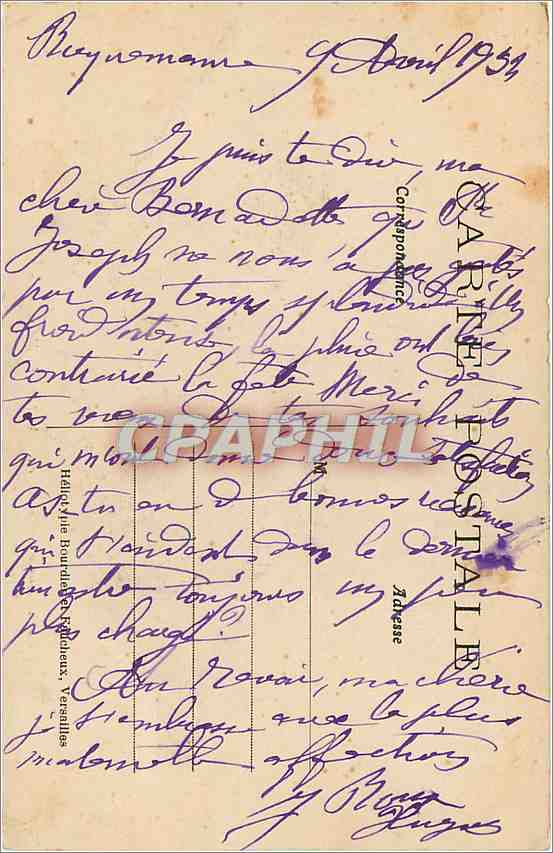 9 Avril 1932
Je puis te dire, ma
chère Bernadette que St
Joseph ne nous a pas gâtés
par un temps splendide. Un
froid intense, la pluie ont
contrarié la fête. Merci de
tes
qui m'ont
As-tu eu de bonnes vacances
qui t'aident dans le dernier
trimestre toujours un peu
plus chargé?
Au revoir, ma chérie
je t'embrasse avec la plus
maternelle affection
CARTE POSTALE
Correspondance
Adresse
M
Héliotypie Bourdier et Faucheux, Versailles
CPAPHIL